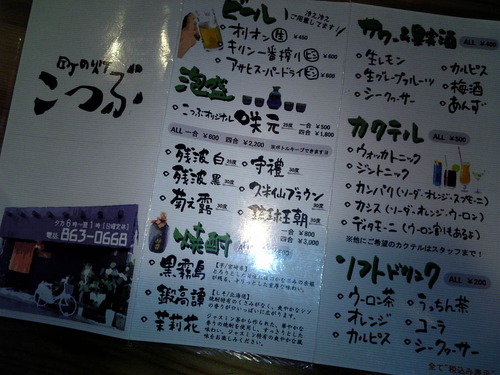 町の灯
こつぶ
夕方6時〜夜1時(日曜定休)
電話 863-0668
ビール
冷え冷え
ご用意してます!
オリオン 生 ¥450
キリン一番搾り ビン ¥600
アサヒスーパードライ ビン ¥600
泡盛
こつぶオリジナル 咲元 25度 一合 ¥500
四合 ¥1,800
ALL 一合 ¥600 四合 ¥2,200
※ボトルキープできますヨ
残波 白 25度
残波 黒 30度
南之露 30度
守禮 30度
久米仙ブラウン 30度
琉球王朝 30度
焼酎
一合 ¥800
四合 ¥3,000
黒霧島
【芋/宮崎県】
鍛高譚
【しそ/北海道】
茉莉花
サワー&果実酒 ALL
生レモン
生グレープフルーツ
シークヮーサー
カルピス
梅酒
あんず
カクテル ALL ¥500
ウォッカトニック
ジントニック
カンパリ(ソーダ・オレンジ・スプモーニ)
カシス(ソーダ・オレンジ・ウーロン)
ディタモーニ(ウーロン割もあるよ)
※他にご希望のカクテルはスタッフまで!
ソフトドリンク ALL ¥200
ウーロン茶
オレンジ
カルピス
うっちん茶
コーラ
シークヮーサー
全て"税込み